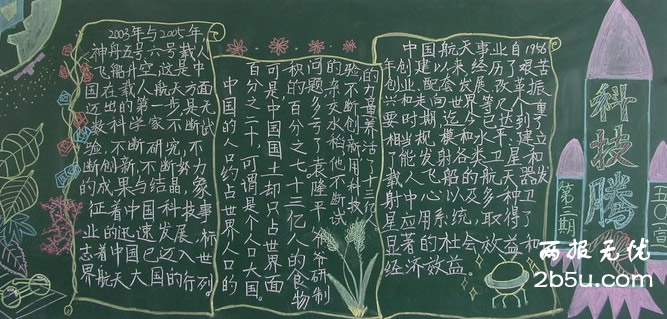 2003年与2005年,
神舟五号六号载人
飞船升空,这是中
国在载人航天方面
迈出的第一步,无
数科学家不断试
验,不断研究,不
断创新,不断努力
的成果与结晶,象
征着中国科技事
业的迅速发展,标
志着中国已迈入世
界航天大国的行列。
中国的人口约占世界人口的
百分之二十,可谓是个人口大国。
可是,中国国土却只占世界面
积的百分之七十三亿人的食物
问题多亏了袁隆平爷爷研制
的杂交水稻,他不断试
验不断创新,用科技
的力量养活了十三亿
中国航天事业自1956
年创建以来,经历了艰苦
创业、配套发展、改革振
兴和走向世界等几个重
要时期,迄今已达到了
相当规模和水平
显著的社会效益和
经济效益。
科技腾飞
第三期
五〇三
两报无优
2b5u.com